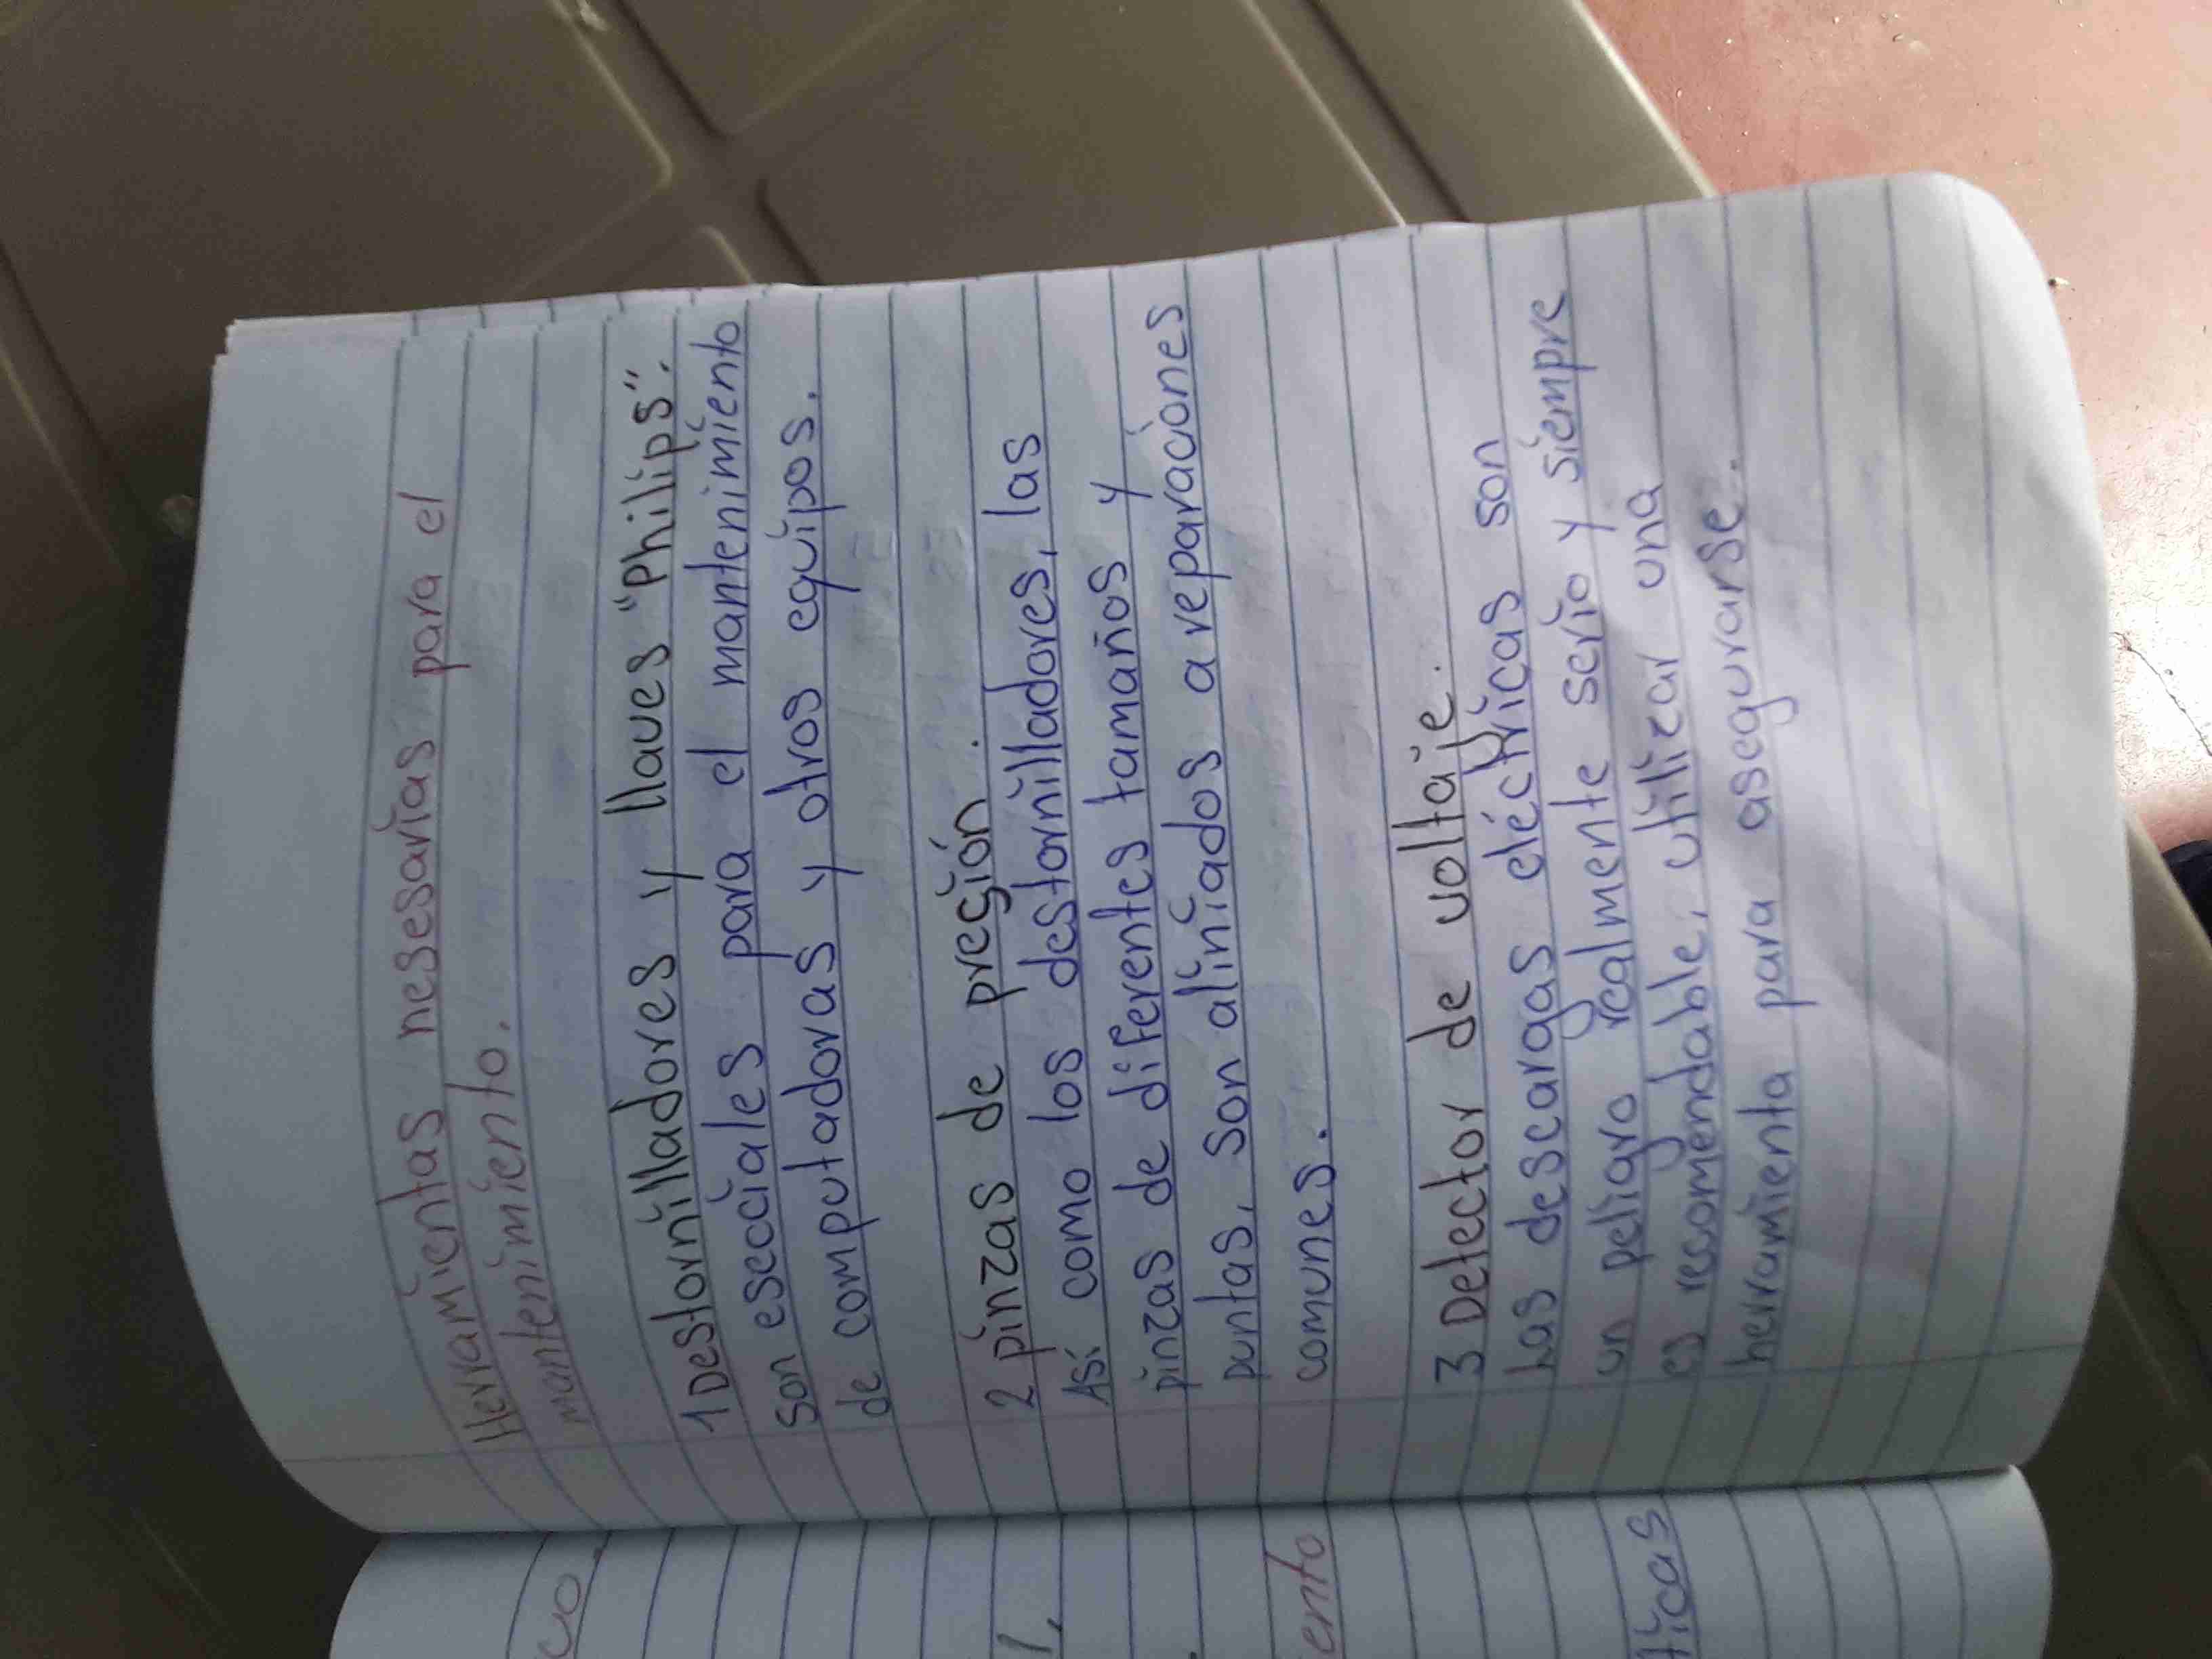 Herramientas nesesarias para el
mantenimiento.
1 Destornilladores y llaves "Philips".
Son eseciales para el mantenimiento
de computadoras y otros equipos.
2 pinzas de presión.
Así como los destornilladores, las
pinzas de diferentes tamaños y
puntas, son aliniados a reparaciones
comunes.
3 Detector de voltaje.
Las descargas eléctricas son
un peligro realmente serio y siempre
es recomendable, utilizar una
herramienta para asegurarse.
co.
1,
ento
ticas